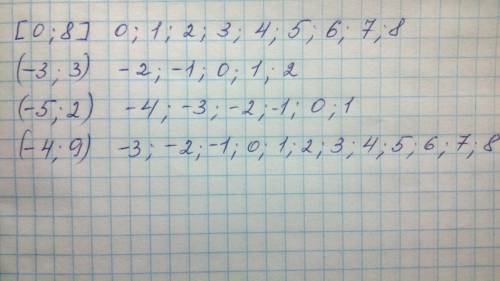 [0; 8] 0; 1; 2; 3; 4; 5; 6; 7; 8
(-3; 3) -2; -1; 0; 1; 2
(-5; 2) -4; -3; -2; -1; 0; 1
(-4; 9) -3; -2; -1; 0; 1; 2; 3; 4; 5; 6; 7; 8